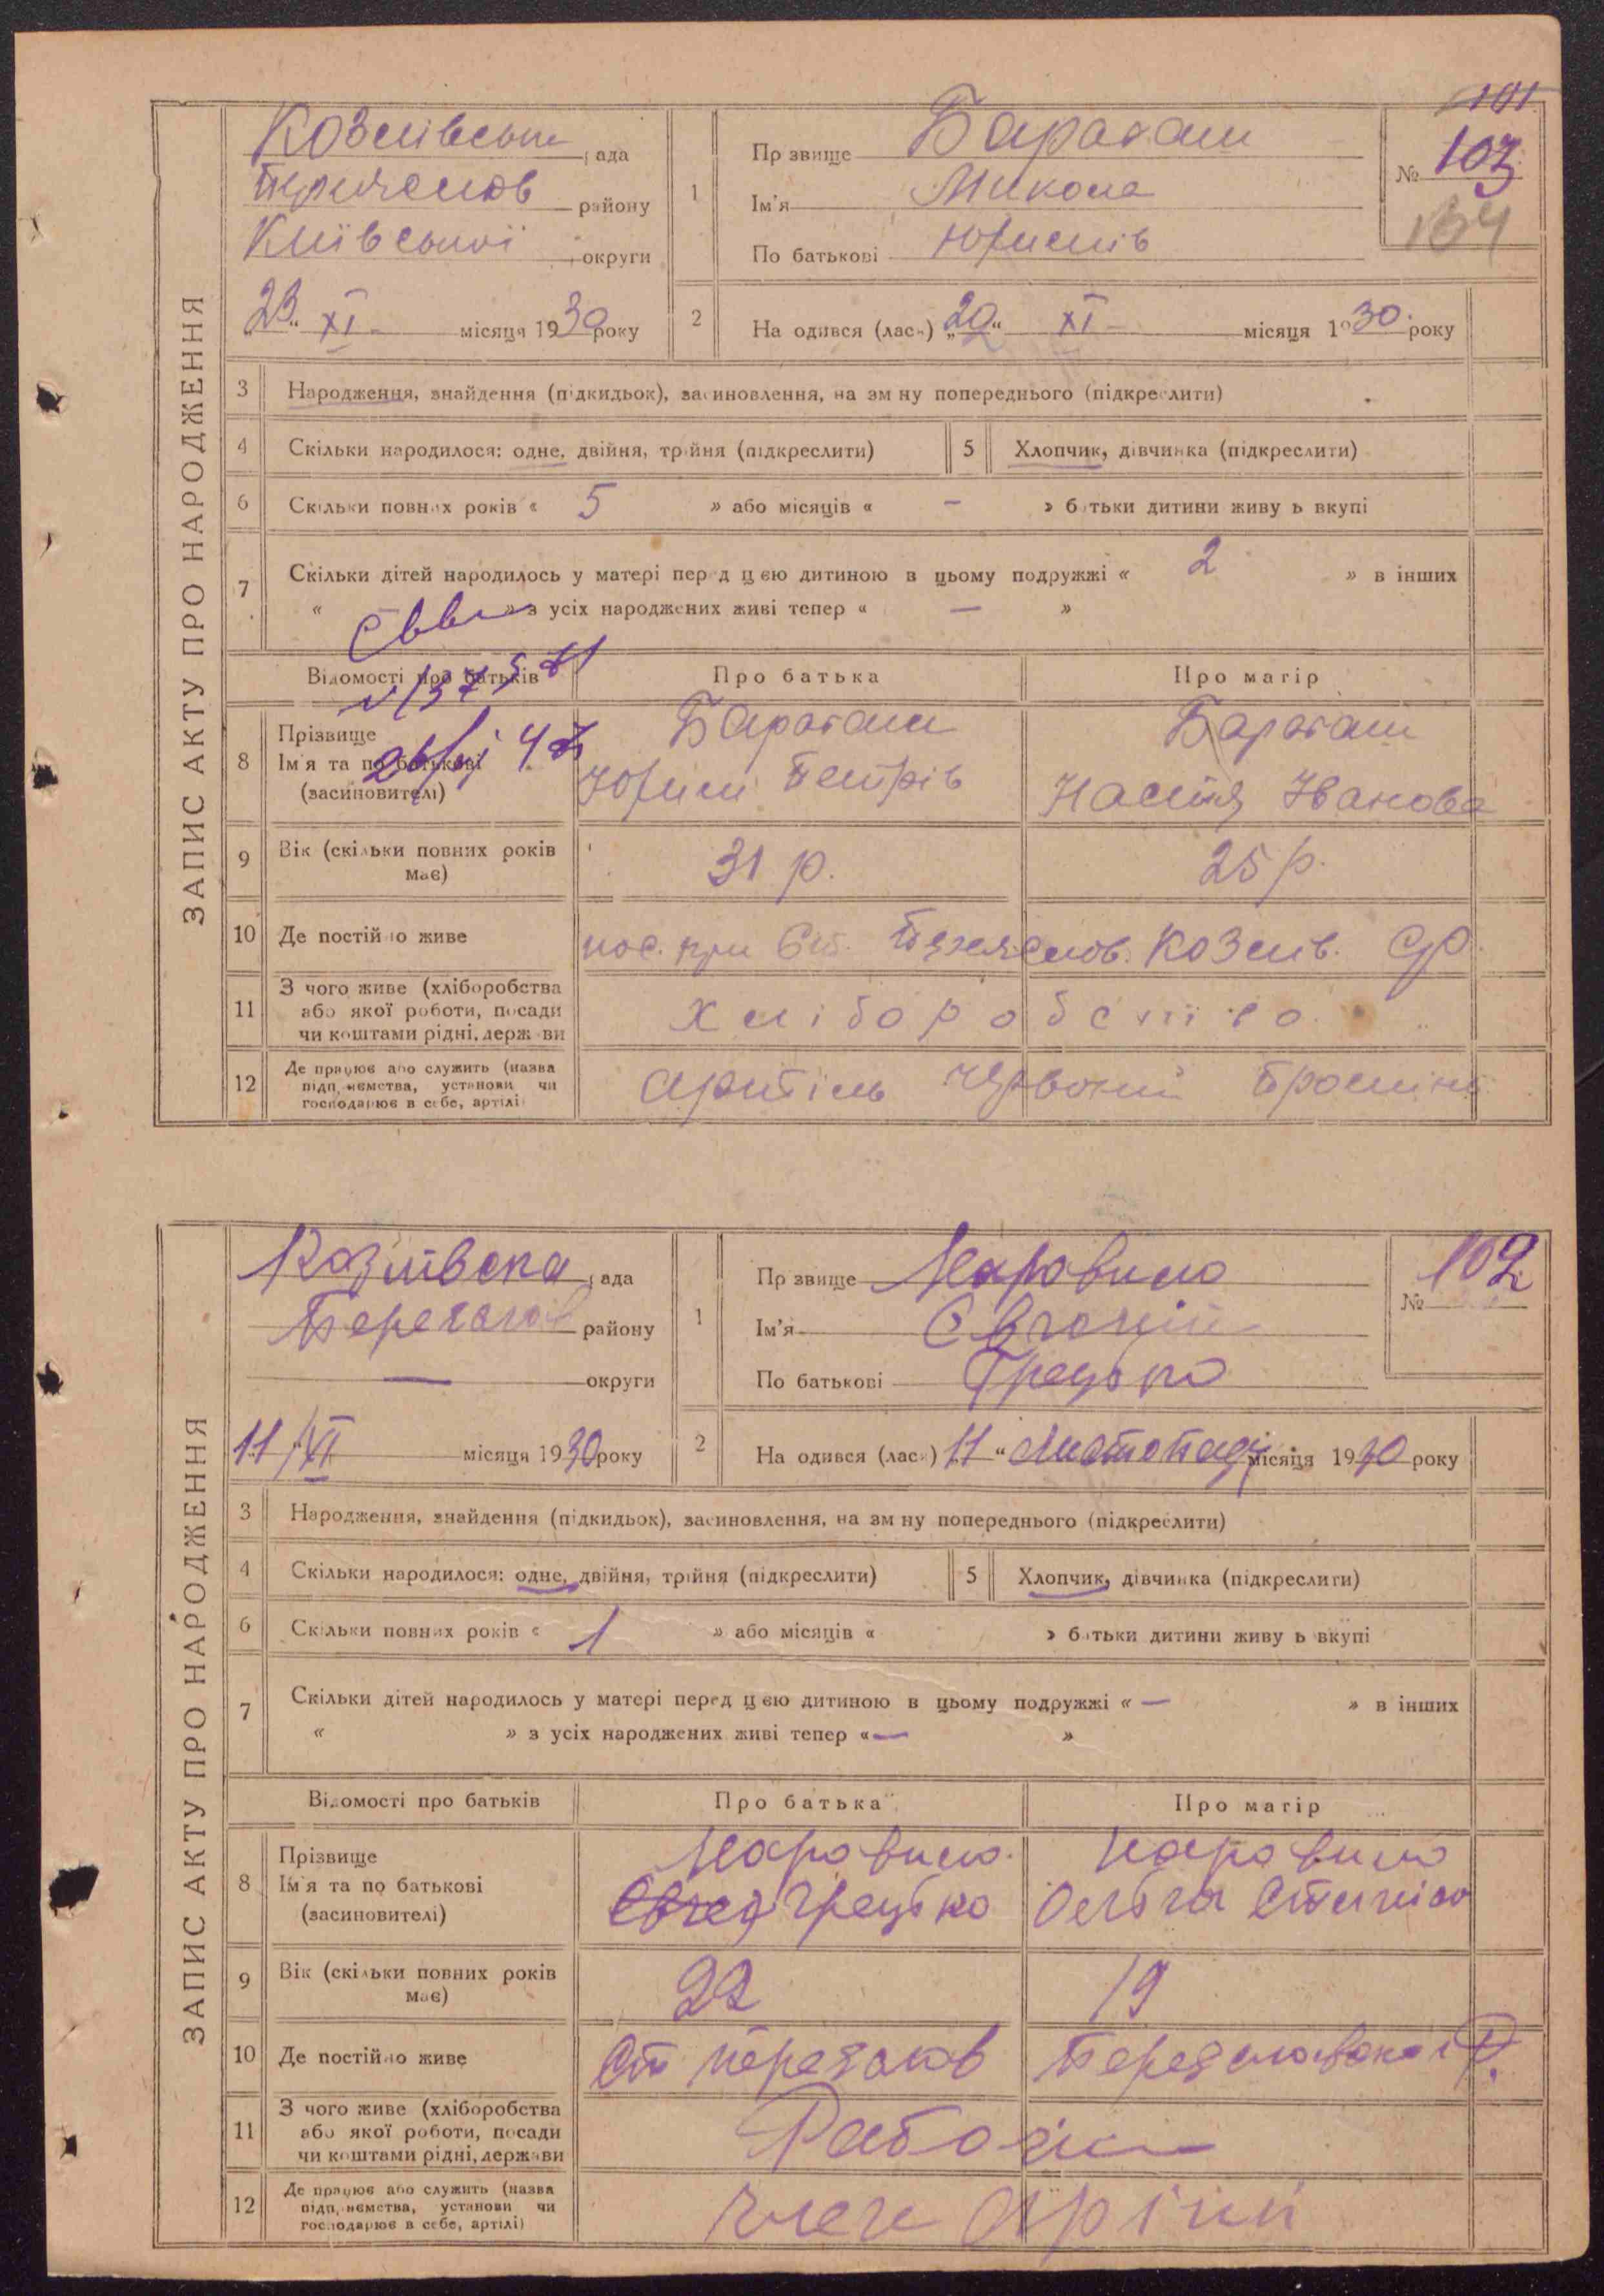 101
ЗАПИС АКТУ ПРО НАРОДЖЕННЯ
рада
району
Київської округи
23 XI місяця 1930 року
1
Прізвище Бараташ
Ім'я Микола
По батькові Юхимів
№ 103
164
2
Народився (лась) „20“ XI місяця 1930 року
3 Народження, знайдення (підкидьок), засиновлення, на зміну попереднього (підкреслити)
4 Скільки народилося: одне, двійня, трійня (підкреслити)
5 Хлопчик, дівчинка (підкреслити)
6 Скільки повних років « 5 » або місяців « – » батьки дитини живуть вкупі
7 Скільки дітей народилось у матері перед цією дитиною в цьому подружжі « 2 » в інших
« » з усіх народжених живі тепер « — »
Відомості про батьків
Про батька
Про матір
8 Прізвище
Ім'я та по батькові
(засиновителі)
Бараташ
Юхим Петрів
Бараташ
Настя Іванова
9 Вік (скільки повних років має)
31 р.
25 р.
10 Де постійно живе
пос. при ст. Козлів. СР
11 З чого живе (хліборобства
або якої роботи, посади
чи коштами рідні, держави
Хліборобство.
12 Де працює або служить (назва
підприємства, установи чи
господарює в себе, артілі)
артіль Червоний Промінь
ЗАПИС АКТУ ПРО НАРОДЖЕННЯ
Козлівська рада
району
— округи
11/XI місяця 1930 року
1
Прізвище
Ім'я
По батькові Грецько
№ 102
2
Народився (лась) „11“ Листопаду місяця 1930 року
3 Народження, знайдення (підкидьок), засиновлення, на зміну попереднього (підкреслити)
4 Скільки народилося: одне, двійня, трійня (підкреслити)
5 Хлопчик, дівчинка (підкреслити)
6 Скільки повних років « 1 » або місяців « » батьки дитини живуть вкупі
7 Скільки дітей народилось у матері перед цією дитиною в цьому подружжі « — » в інших
« » з усіх народжених живі тепер « — »
Відомості про батьків
Про батька
Про матір
8 Прізвище
Ім'я та по батькові
(засиновителі)
Грецько
Ольга
9 Вік (скільки повних років має)
22
19
10 Де постійно живе
Ст
Р.
11 З чого живе (хліборобства
або якої роботи, посади
чи коштами рідні, держави
12 Де працює або служить (назва
підприємства, установи чи
господарює в себе, артілі)
член